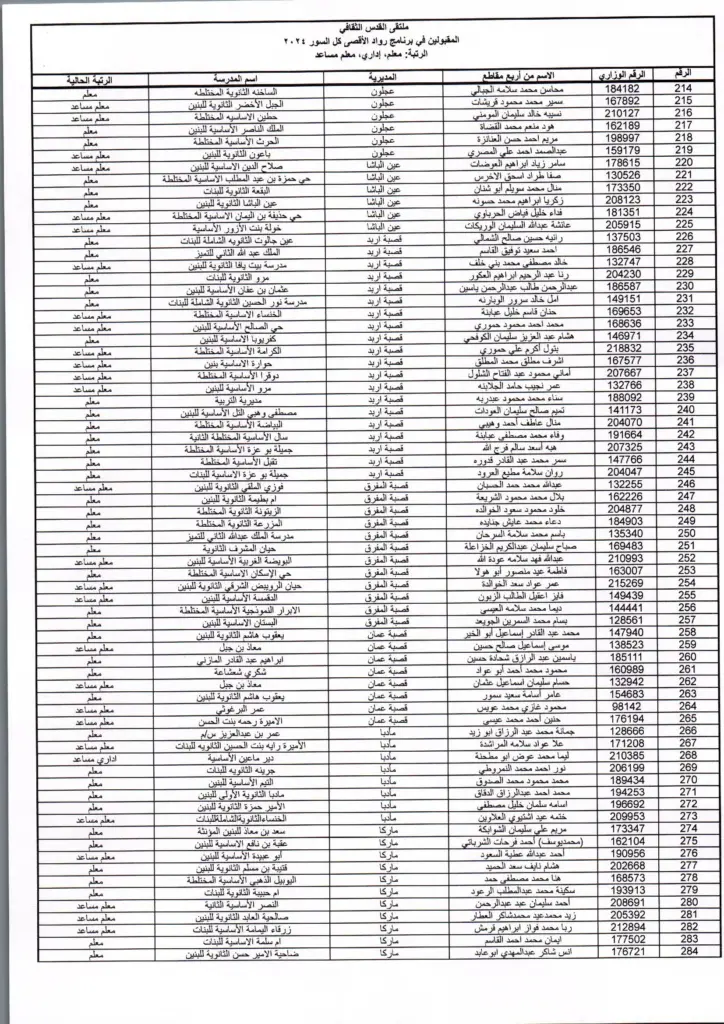 ملتقى القدس الثقافي
المقبولين في برنامج رواد الأقصى كل السور ٢٠٢٤
الرتبة: معلم، إداري، معلم مساعد
الرقم الرقم الوزاري الاسم من أربع مقاطع المديرية اسم المدرسة الرتبة الحالية
214 184182 محاسن محمد سلامه الجبالي عجلون الساخنه الثانوية المختلطه معلم
215 167892 سمير محمد محمود قريشات عجلون الجبل الأخضر الثانوية للبنين معلم مساعد
216 210127 نسيبه خالد سليمان المومني عجلون حطين الاساسيه المختلطة معلم مساعد
217 162189 هود منعم محمد القضاة عجلون الملك الناصر الأساسية للبنين معلم
218 198997 مريم احمد حسن العنانزة عجلون الحرث الأساسية المختلطة معلم
219 159179 عبدالصمد احمد علي المصري عجلون باعون الثانوية للبنين معلم مساعد
220 178615 سامر زياد ابراهيم العوضات عين الباشا صلاح الدين الاساسية للبنين معلم مساعد
221 130526 صفا طراد اسحق الاخرس عين الباشا حي حمزة بن عبد المطلب الاساسية المختلطة معلم
222 173350 منال محمد سويلم أبو شنان عين الباشا البقعة الثانوية للبنات معلم
223 208123 زكريا ابراهيم محمد حسونه عين الباشا عين الباشا الثانوية للبنين معلم
224 181351 فداء خليل فياض الحرباوي عين الباشا حي حذيفة بن اليمان الاساسية المختلطة معلم مساعد
225 205915 عائشة عبدالله السليمان الوريكات عين الباشا خولة بنت الأزور الأساسية معلم مساعد
226 137503 رانيه حسين صالح الشمالي قصبة اربد عين جالوت الثانويه الشاملة للبنات معلم
227 186546 احمد سعيد توفيق القاسم قصبة اربد الملك عبد الله الثاني للتميز معلم
228 132747 خالد مصطفى محمد بني خلف قصبة اربد مدرسة بيت يافا الثانوية للبنين معلم مساعد
229 204230 رنا عبد الرحيم ابراهيم العكور قصبة اربد مرو الثانوية للبنات معلم
230 186587 عبدالرحمن طالب عبدالرحمن ياسين قصبة اربد عثمان بن عفان الأساسية للبنين معلم
231 149151 امل خالد سرور قصبة اربد مدرسة نور الحسين الثانوية الشاملة للبنات معلم
232 169653 حنان قاسم خليل عبابنة قصبة اربد الخنساء الاساسية المختلطة معلم مساعد
233 168636 محمد احمد محمود حموري قصبة اربد حي الصالح الأساسية للبنين معلم مساعد
234 146971 هشام عبد العزيز سليمان الكوفحي قصبة اربد كفريوبا الاساسية للبنين معلم
235 218832 بتول أكرم علي حموري قصبة اربد الكرامة الأساسية المختلطة معلم مساعد
236 167577 اشرف مطلق محمد المطلق قصبة اربد حوارة الأساسية بنين معلم مساعد
237 207667 أماني محمود عبد الفتاح الشلول قصبة اربد دوقرا الأساسية المختلطة معلم مساعد
238 132766 عمر نجيب حامد الجلابنه قصبة اربد مرو الأساسية للبنين معلم مساعد
239 188092 سناء محمد محمود عبدربه قصبة اربد مديرية التربية معلم
240 141173 تميم صالح سليمان العودات قصبة اربد مصطفى وهبي التل الأساسية للبنين معلم
241 204070 منال عاطف أحمد وهيبي قصبة اربد البياضة الأساسية المختلطة معلم
242 191664 وفاء محمد مصطفى عبابنة قصبة اربد سال الأساسية المختلطة الثانية معلم
243 207325 هبه أسعد سالم فرج الله قصبة اربد جميلة بو عزة الأساسية المختلطة معلم
244 147766 سمر محمد عبد القادر قدوره قصبة اربد تقبل الأساسية المختلطة معلم
245 204047 روان سلامة مطيع العرود قصبة اربد جميلة بو عزة الاساسية للبنات معلم
246 132255 عبدالله محمد حمد الحسبان قصبة المفرق فوزي الملقي الثانوية للبنين معلم مساعد
247 162226 بلال محمد محمود الشريعة قصبة المفرق ام بطيمة الثانوية للبنين معلم
248 204877 خلود محمود سعود الخوالده قصبة المفرق الزيتونة الثانوية المختلطة معلم
249 184903 دعاء محمد عايش جنايده قصبة المفرق المزرعة الثانوية المختلطة معلم
250 135340 باسم محمد سلامة السرحان قصبة المفرق مدرسة الملك عبدالله الثاني للتميز معلم
251 169483 صباح سليمان عبدالكريم الخزاعلة قصبة المفرق حيان المشرف الثانوية معلم
252 210993 عبدالله فهد سلامه عودة الله قصبة المفرق البويضة الغربية الأساسية للبنين معلم مساعد
253 163007 فاطمة عيد منصور أبو هولا قصبة المفرق حي الإسكان الاساسية المختلطة معلم
254 215269 عمر عواد سعد الخوالدة قصبة المفرق حيان الرويبض الشرقي الثانوية للبنين معلم مساعد
255 149439 فايز اعقيل الطالب الزيون قصبة المفرق الدقمسة الأساسية للبنين معلم مساعد
256 144441 ديما محمد سلامه العيسى قصبة المفرق الابرار النموذجية الأساسية المختلطة معلم
257 128561 بسام محمد السمرين الجويعد قصبة المفرق البستان الاساسية للبنين معلم
258 147940 محمد عبد القادر إسماعيل أبو الخير قصبة عمان يعقوب هاشم الثانوية للبنين معلم
259 138523 موسى إسماعيل صالح حسين قصبة عمان معاذ بن جبل معلم مساعد
260 185111 ياسمين عبد الرازق شحادة حسين قصبة عمان ابراهيم عبد القادر المازني معلم
261 160989 محمود محمد أحمد أبو عواد قصبة عمان شكري شعشاعة معلم
262 132942 حسام سليمان اسماعيل عثمان قصبة عمان معاذ بن جبل معلم مساعد
263 154683 عامر أسامة سعيد سمور قصبة عمان يعقوب هاشم الثانوية للبنين معلم
264 98142 محمود غازي محمد عويس قصبة عمان عمر البرغوثي معلم مساعد
265 176194 حنين أحمد محمد عيسى قصبة عمان الاميرة رحمه بنت الحسن معلم مساعد
266 128666 جمانة محمد عبد الرزاق ابو زيد مأدبا عمر بن عبدالعزيز س/م معلم
267 171208 علا عواد سلامه المراشدة مأدبا الأميرة رايه بنت الحسين الثانويه للبنات معلم مساعد
268 210385 ليما محمد عوض ابو مطحنة مأدبا دير ماعين الأساسية اداري مساعد
269 206199 نور أحمد محمد النمروطي مأدبا جرينه الثانويه للبنات معلم
270 189434 محمد محمود محمد الصدوق مأدبا التيم الأساسية للبنين معلم
271 194253 محمد احمد عبدالرزاق الدقاق مأدبا مادبا الثانوية الأولى للبنين معلم
272 196692 اسامه سلمان خليل مصطفى مأدبا الأمير حمزة الثانوية للبنين معلم
273 209953 ختمه عيد اشتيوي العلاوين مأدبا الخنساءالثانويةالشاملةللبنات معلم مساعد
274 173347 مريم علي سليمان الشوابكة ماركا سعد بن معاذ للبنين المؤنثة معلم
275 162104 (محمديوسف) أحمد فرحات الشرباتي ماركا عقبة بن نافع الاساسية للبنين معلم
276 190956 أحمد عبدالله عطية السعود ماركا أبو عبيدة الأساسية للبنين معلم مساعد
277 202668 هشام نايف سعد الحميد ماركا قتيبة بن مسلم الثانوية للبنين معلم
278 168573 هنا محمد مصطفى حمد ماركا اليوبيل الذهبي الأساسية المختلطة معلم
279 193913 سكينة محمد عبدالمطلب الرعود ماركا ام حبيبة الثانوية للبنات معلم
280 208691 أحمد سليمان عبد عبدالرحمن ماركا النصر الأساسية الثانية معلم مساعد
281 205392 زيد محمدعيد محمدشاكر العطار ماركا صالحية العابد الثانوية للبنين معلم مساعد
282 212894 ربا محمد فواز ابراهيم قرمش ماركا زرقاء اليمامة الأساسية للبنات معلم مساعد
283 177502 ايمان محمد احمد القاسم ماركا ام سلمة الاساسية للبنات معلم
284 176721 انس شاكر عبدالمهدي ابوعابد ماركا ضاحية الامير حسن الثانوية للبنين معلم